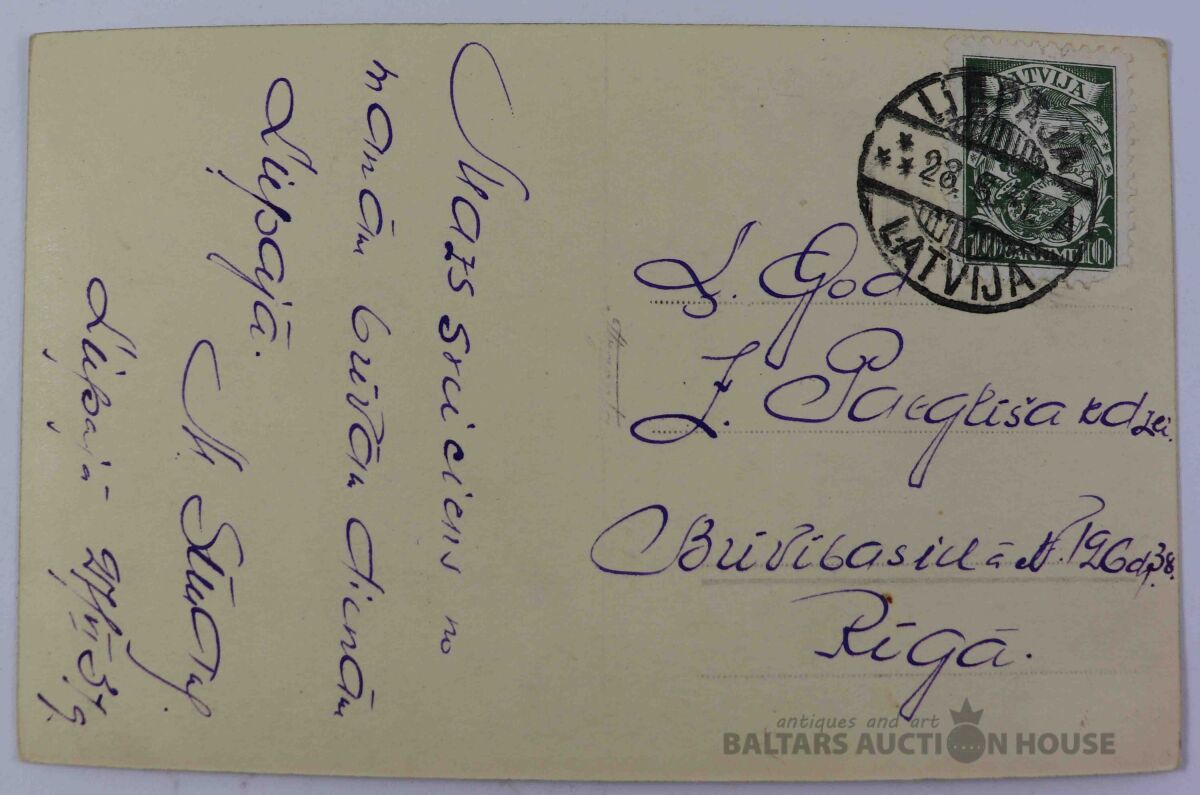 Mazs sveiciens no
manām brīvām dienām
Liepājā.
M.
Liepājā
g.
LATVIJA
LIEPĀJA
28.
LATVIJA
10 10
L. God.
J. Paeglīša kdzei.
Brīvības ielā N. 196 dz. 38.
Rīgā.
antiques and art
BALTARS AUCTION HOUSE